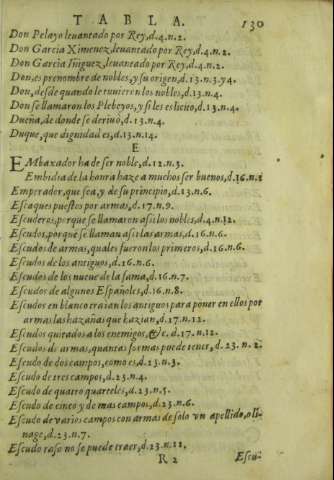 TABLA. 130
Don Pelayo leuantado por Rey,d.4.n.2.
Don Garcia Ximenez,leuantado por Rey,d.4.n.2.
Don Garcia Iñiguez,leuantado por Rey,d.4.n.2.
Don,es prenombre de nobles, y su origen,d.13.n.3.y4.
Don,desde quando le tuuieron los nobles,d.13.n.4.
Don se llamaron los Plebeyos,y si les es licito,d.13.n.4.
Dueña,de donde se deriuò,d.13.n.4.
Duque,que dignidad es,d.13.n.14.
E
EMbaxador ha de ser noble,d.12.n.3.
Embidia de la honra haze a muchos ser buenos,d.16.n.2
Emperador,que sea,y de su principio,d.13.n.6.
Escaques puestos por armas,d.17.n.9.
Escuderos,porque se llamaron assi los nobles,d.4.n.12.
Escudos,porque se llaman assi las armas,d.16.n.6.
Escudos de armas,quales fueron los primeros,d.16.n.6.
Escudos de los antiguos,d.16.n.6.
Escudos de los nueue de la fama,d.16.n.7.
Escudos de algunos Españoles,d.16.n.8.
Escudos en blanco traian los antiguos para poner en ellos por
armas las hazañas que hazian,d.17.n.12.
Escudos quitados a los enemigos,&c.d.17.n.12.
Escudos de armas,quantas formas puede tener,d.23.n.2.
Escudo de dos campos,como es,d.23.n.3.
Escudo de tres campos,d.23.n.4.
Escudo de quatro quarteles,d.23.n.5.
Escudo de cinco y de mas campos,d.23.n.6.
Escudo de varios campos con armas de solo vn apellido,o li-
nage,d.23.n.7.
Escudo raso no se puede traer,d.23.n.11.
R 2 Escu-